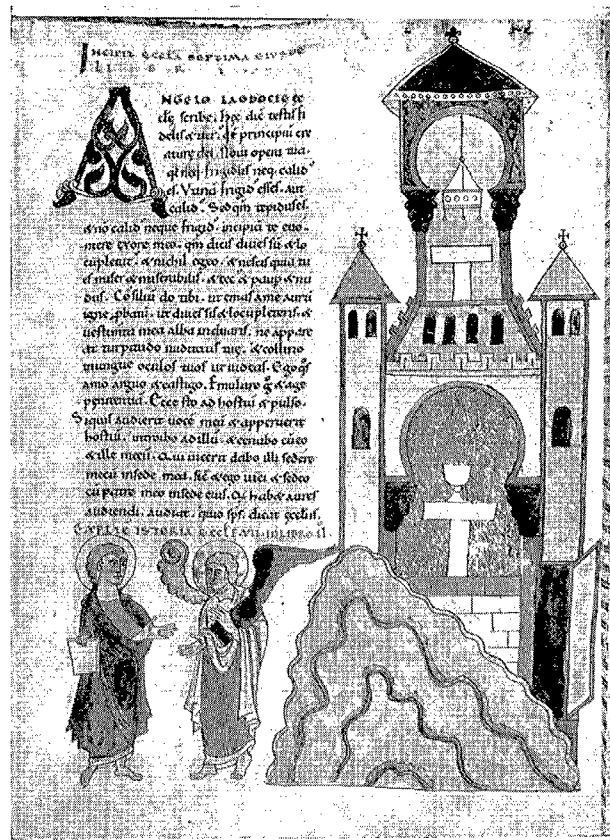 INCIPIT ECCLA SEPTIMA
ANGELO LAODOCIE ec
clę scribe. hęc dic̄ testis fi
delis & ver'. principiū cre
aturę dei. Noui opera tua.
neq; frigidus neq; calid'
es. Utinā frigid' esses. aut
calid'. Sed qm̄ tepidus es.
& nō calid' neque frigid'. incipiā te euo
mere exore meo. qm̄ dicis diues sū & lo
cupletat'. & nichil egeo. & nescis quia tu
es miser & miserabilis. & cęc' & paup & nu
dus. Cōsiliū do tibi. ut emas ame aurū
igne pbatū. ut diues sis & locupleteris. &
uestimta mea alba induaris. ne appare
at turpitudo nuditatis tuę. & collirio
inungue oculos tuos ut uideas. Ego q̄s
amo arguo & castigo. Emulare g̊ & age
penitentiā. Ecce sto ad hostiū & pulso.
Siquis audierit uocē meā & apperuerit
hostiū. introibo ad illū & cenabo cū eo
& ille mecū. Qui uicerit dabo illi sedere
mecū insede mea. sic̄ & ego uici & sedeo
cū patre meo insede eius. Qi habet aures
audiendi. audiat. quid sps̄ dicat ecclis.
EXPLIC ISTORIA ECCLE VII IN LIBRO II.